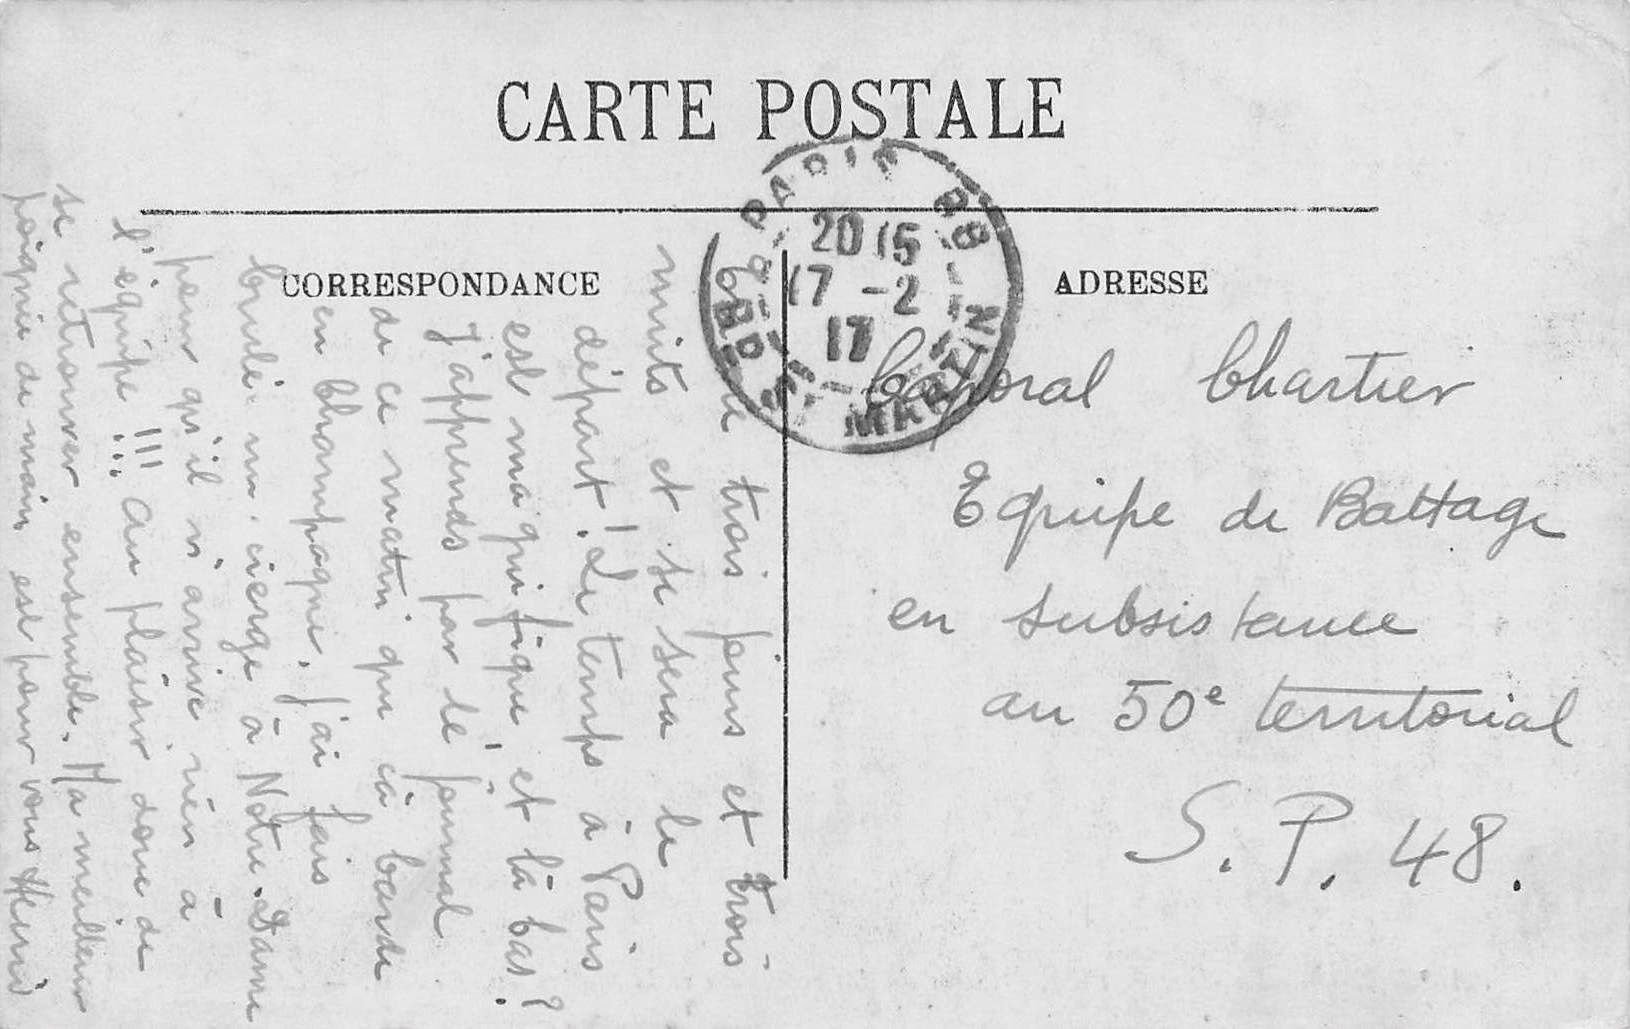 CARTE POSTALE
CORRESPONDANCE
ADRESSE
PARIS
20 15
17 - 2
17
BD ST MARTIN
Encore trois jours et trois
nuits et se sera le
départ! Le temps à Paris
est magnifique, et là bas?
J'apprends par le journal
de ce matin que çà barde
en Champagne, J'ai fais
brulé un cierge à Notre Dame
pour qu'il n'arrive rien à
l'équipe !!! Au plaisir donc de
se retrouver ensemble. Ma meilleure
poignée de main est pour vous Henri
Caporal Chartier
Equipe de Battage
en subsistance
au 50e territorial
S. P. 48.